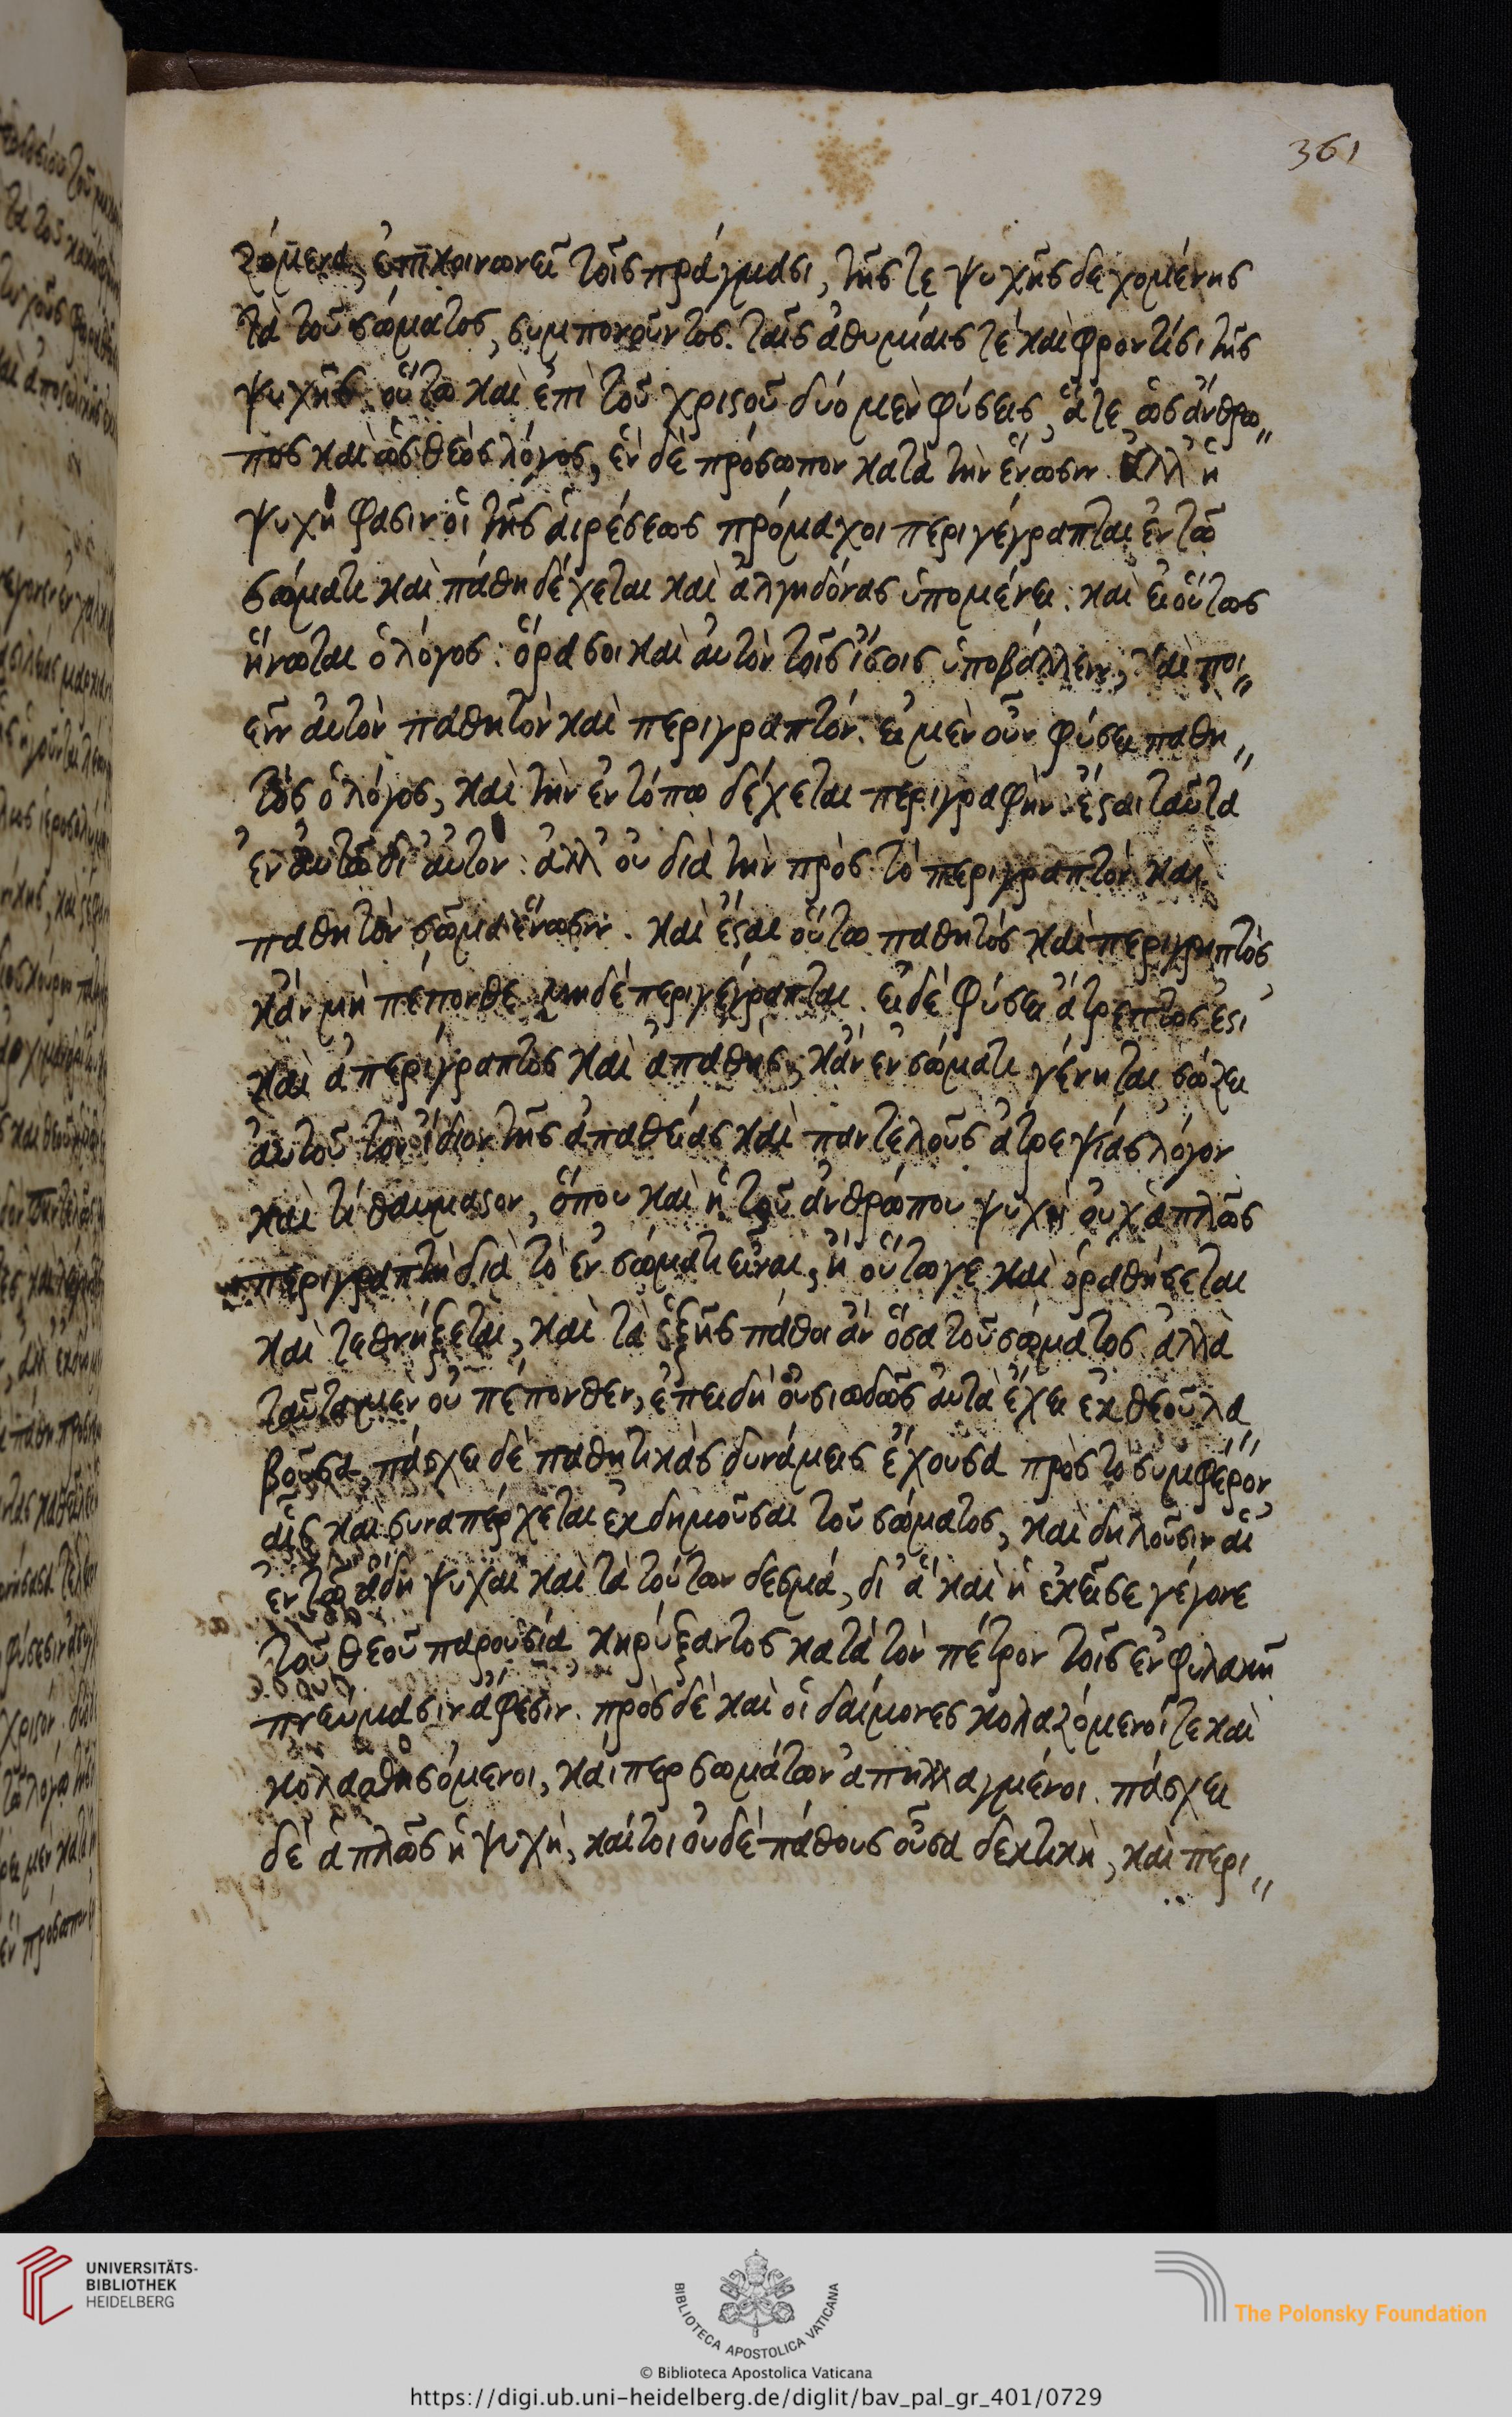 361
ζόμενα, ἐπικοινωνεῖ τοῖς πράγμασι, τῆς τε ψυχῆς δεχομένης
τὰ τοῦ σώματος, συμπονοῦντος ταῖς ἀθυμίαις τὲ καὶ φροντίσι τῆς
ψυχῆς. οὕτω καὶ ἐπὶ τοῦ χριϛοῦ δύο μὲν φύσεις, ἅτε ὡς ἄνθρω„
πος καὶ ὡς θεὸς λόγος, ἓν δὲ πρόσωπον κατὰ τὴν ἕνωσιν. ἀλλ' ἡ
ψυχὴ φασιν οἱ τῆς αἱρέσεως πρόμαχοι περιγέγραπται ἐν τῶ
σώματι καὶ πάθη δέχεται καὶ ἀλγηδόνας ὑπομένει. καὶ εἰ οὕτως
ἥνωται ὁ λόγος: ὅρα σοι καὶ αὐτὸν τοῖς ἴσοις ὑποβάλλειν, καὶ ποι„
εῖν αὐτὸν παθητὸν καὶ περιγραπτόν. εἰ μὲν οὖν φύσει παθη„
τὸς ὁ λόγος, καὶ τὴν ἐν τόπω δέχεται περιγραφὴν. ἔϛαι ταῦτα
ἐν αὐτῶ δι' αὐτὸν: ἀλλ' οὐ διὰ τὴν πρὸς τὸ περιγραπτὸν καὶ
παθητὸν σῶμα ἕνωσιν. καὶ ἔϛαι οὕτω παθητὸς καὶ περιγραπτὸς
κἂν μὴ πέπονθε μηδὲ περιγέγραπται. εἰ δὲ φύσει ἄτρεπτος ἐϛὶ
καὶ ἀπερίγραπτος καὶ ἀπαθὴς, κἂν ἐν σώματι γένηται, σώζει
αὐτοῦ τὸν ἴδιον τῆς ἀπαθείας καὶ παντελοῦς ἀτρεψίας λόγον
καὶ τί θαυμαϛὸν, ὅπου καὶ ἡ τοῦ ἀνθρώπου ψυχὴ οὐχ ἁπλῶς
περιγραπτὴ διὰ τὸ ἐν σώματι εἶναι, ἢ οὕτωγε καὶ ὁραθήσεται
καὶ τεθνήξεται, καὶ τὰ ἑξῆς πάθοι ἂν ὅσα τοῦ σώματος. ἀλλὰ
ταῦτα μὲν οὐ πέπονθεν, ἐπειδὴ οὐσιωδῶς αὐτὰ ἔχει ἐκ θεοῦ λα
βοῦσα, πάσχει δὲ παθητικὰς δυνάμεις ἔχουσα πρὸς τὸ συμφέρον
αἷς καὶ συναπέρχεται ἐκδημοῦσαι τοῦ σώματος, καὶ δηλοῦσιν αἱ
ἐν τῶ ἅδη ψυχαὶ καὶ τὰ τούτων δεσμά, δι' ἃ καὶ ἡ ἐκεῖσε γέγονε
τοῦ θεοῦ παρουσία κηρύξαντος κατὰ τὸν πέτρον τοῖς ἐν φυλακῆ
πνεύμασιν ἄφεσιν. πρὸς δὲ καὶ οἱ δαίμονες κολαζόμενοί τε καὶ
κολασθησόμενοι, καίπερ σωμάτων ἀπηλλαγμένοι. πάσχει
δὲ ἁπλῶς ἡ ψυχὴ, καίτοι οὐδὲ πάθους οὖσα δεκτικὴ, καὶ περι„
UNIVERSITÄTS-
BIBLIOTHEK
HEIDELBERG
BIBLIOTECA APOSTOLICA VATICANA
© Biblioteca Apostolica Vaticana
The Polonsky Foundation
https://digi.ub.uni-heidelberg.de/diglit/bav_pal_gr_401/0729